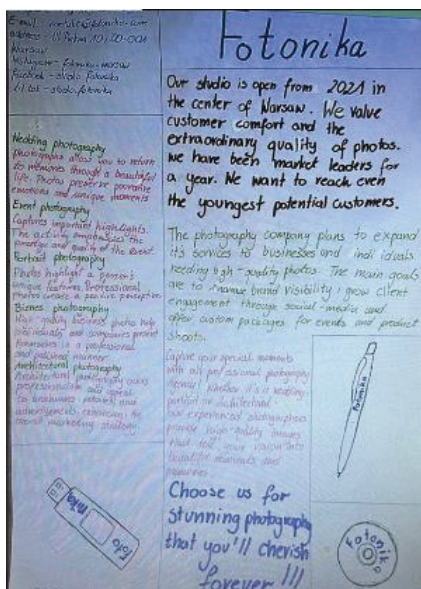 address - Ul. Piękna 10, 00-001
Warsaw
Instagram - fotonika-warsaw
Facebook - studio fotonika
- studio.fotonika
Wedding photography
photographs allow you to return
to memories through a beautiful
life. Photos preserve
emotions and unique moments
Event photography
Captures important highlights.
The activity emphasizes the
prestige and quality of the event.
Portrait photography
Photos highlight a person's
unique features. Professional
Photos create a positive perception
Biznes photography
High-quality business photos help
individuals and companies present
themselves in a professional
and polished manner
Architectural photography
Architectural photography adds
professionalism and appeal
to brochures, websites, and
advertisements, enhancing the
overall marketing strategy.
Fotonika
Our studio is open from 2021 in
the center of Warsaw. We value
customer comfort and the
extraordinary quality of photos.
We have been market leaders for
a year. We want to reach even
the youngest potential customers.
The photography company plans to expand
its services to businesses and individuals
needing high-quality photos. The main goals
are to increase brand visibility, grow client
engagement through social-media and
offer custom packages for events and product
shoots.
Capture your special moments
with our professional photography
Whether it's a wedding,
portrait or architectural -
our experienced photographers
provide high-quality images
that tell your vision into
beautiful moments and
memories.
Choose us for
stunning photography
that you'll cherish
forever !!!
Fotonika
Foto
nika
Fotonika